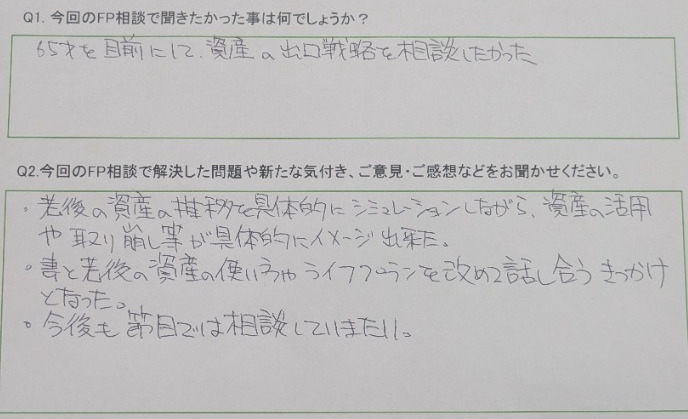 Q1. 今回のFP相談で聞きたかった事は何でしょうか？
65才を目前にして、資産の出口戦略を相談したかった
Q2.今回のFP相談で解決した問題や新たな気付き、ご意見・ご感想などをお聞かせください。
・老後の資産の推移を具体的にシミュレーションしながら、資産の活用
や取り崩し等が具体的にイメージ出来た。
・妻と老後の資産の使い方やライフプランを改めて話し合うきっかけ
となった。
・今後も節目では相談していきたい。